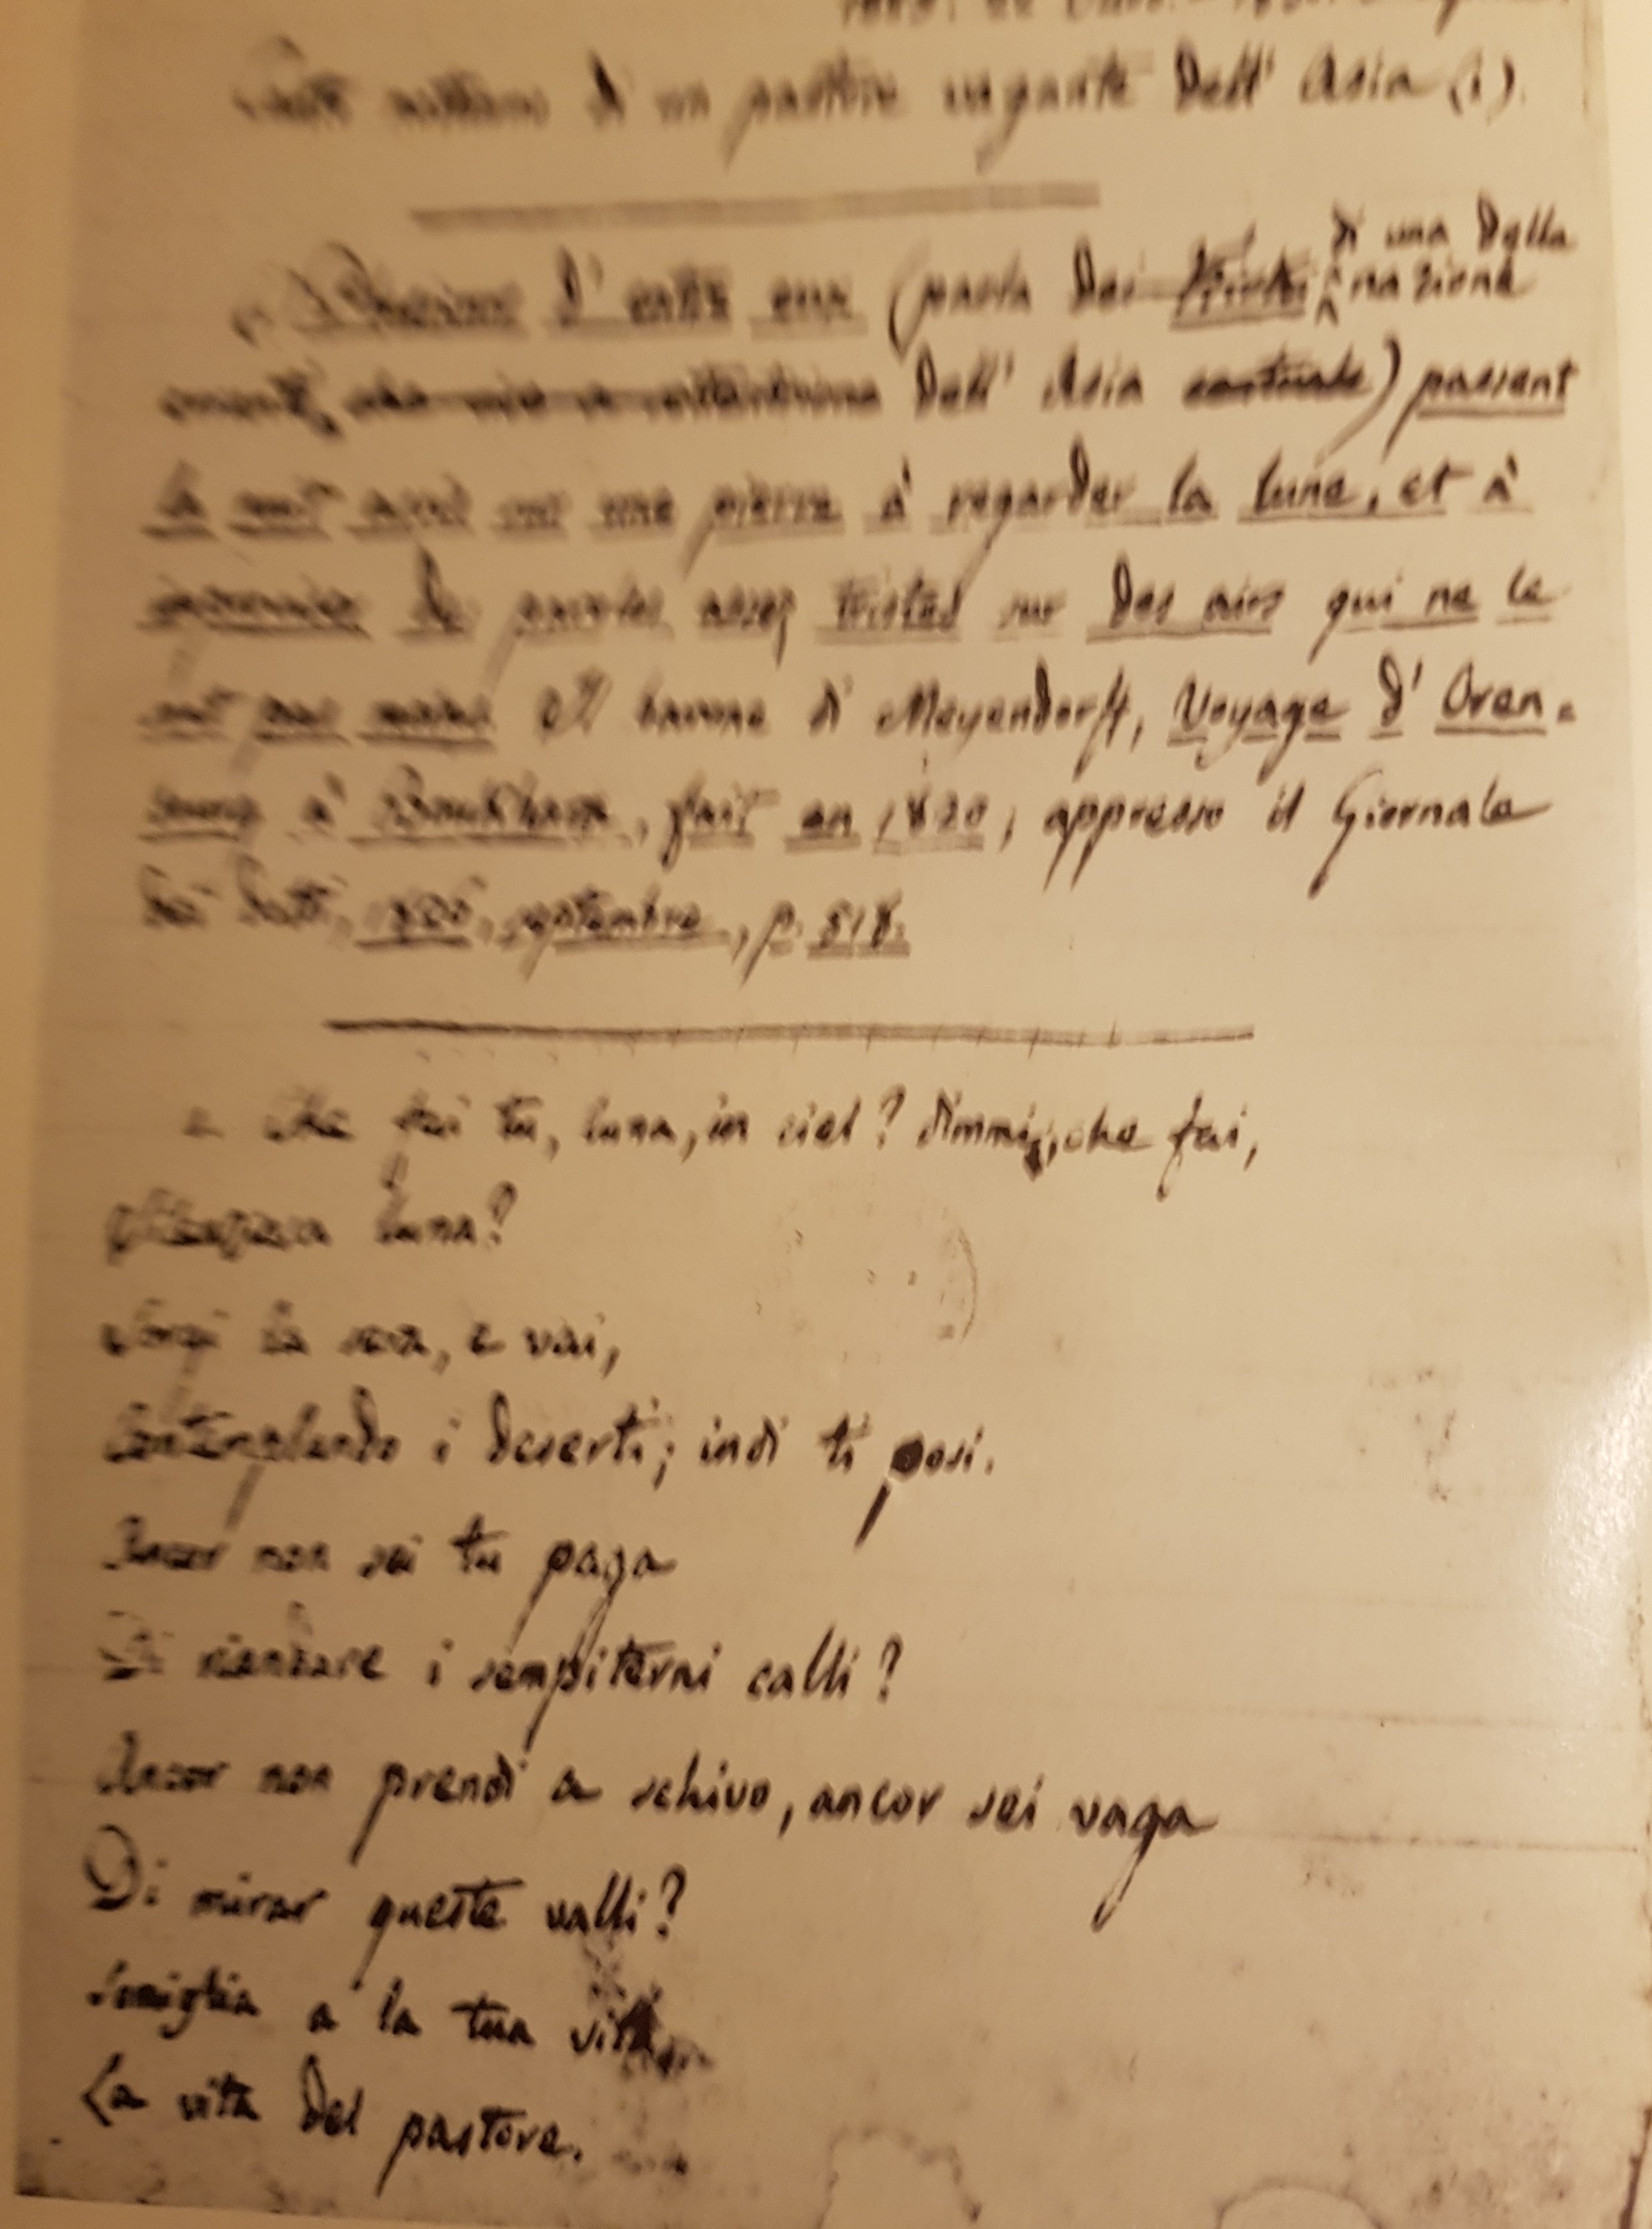 Canto notturno di un pastore vagante dell' Asia (1).
di una della
(1) Plusieurs d'entre eux (parla dei Kirkisi nazione
erranti, dell' Asia centrale) passent
la nuit assis sur une pierre à regarder la lune, et à
improviser des paroles assez tristes sur des airs qui ne le
sont pas moins. Il barone di Meyendorff, Voyage d' Oren-
bourg à Boukhara, fait en 1820, appresso il Giornale
dei Dotti, 1826, septembre, p. 518.
Che fai tu, luna, in ciel? dimmi, che fai,
Silenziosa luna?
Sorgi la sera, e vai,
Contemplando i deserti; indi ti posi.
Ancor non sei tu paga
Di riandare i sempiterni calli?
Ancor non prendi a schivo, ancor sei vaga
Di mirar queste valli?
Somiglia a la tua vita
La vita del pastore.